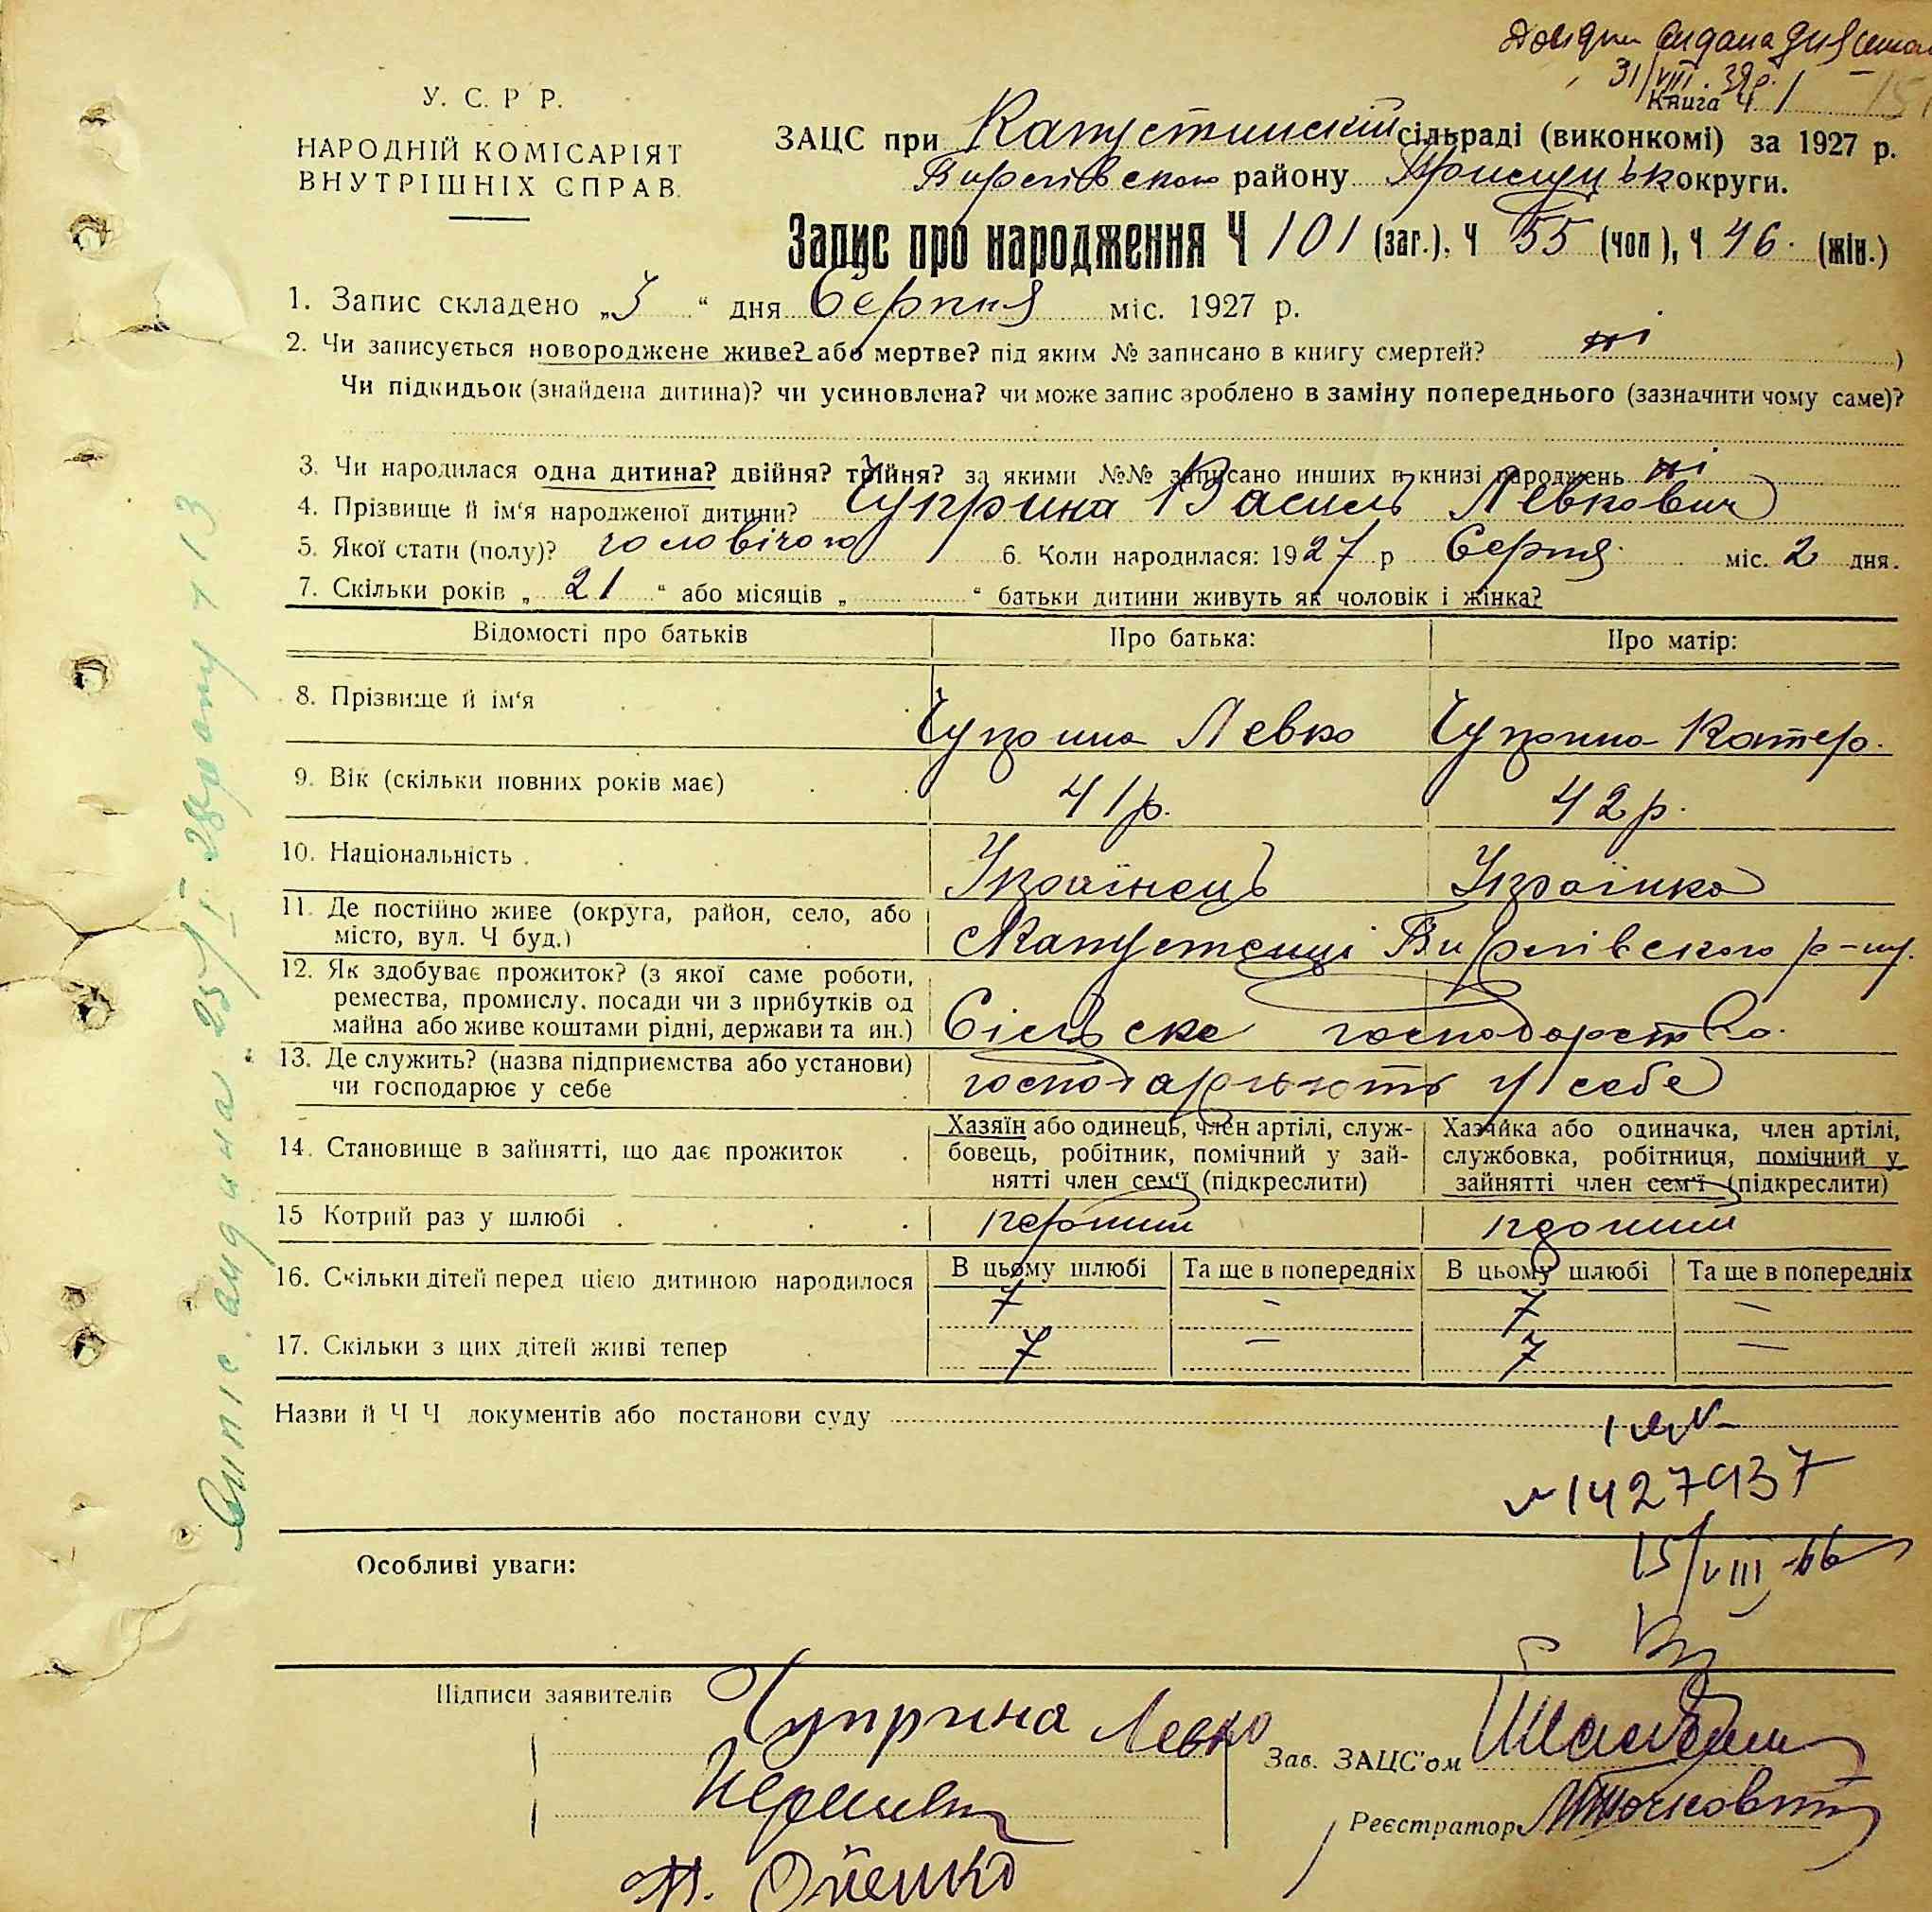 31/VIII. 39р.
Книга Ч 1
У. С. Р Р.
НАРОДНІЙ КОМІСАРІЯТ
ВНУТРІШНІХ СПРАВ.
ЗАЦС при Капустинский сільраді (виконкомі) за 1927 р.
району Прилуцьк округи.
Запис про народження Ч 101 (заг.), Ч 55 (чол), Ч 46. (жін.)
1. Запис складено „3“ дня Серпня міс. 1927 р.
2. Чи записується новороджене живе? або мертве? під яким № записано в книгу смертей? ні )
Чи підкидьок (знайдена дитина)? чи усиновлена? чи може запис зроблено в заміну попереднього (зазначити чому саме)?
3. Чи народилася одна дитина? двійня? трійня? за якими №№ записано инших в книзі народжень ні
4. Прізвище й ім'я народженої дитини? Чуприна Василь Левкович
5. Якої стати (полу)? чоловічою 6. Коли народилася: 1927 р Серпня міс. 2 дня.
7. Скільки років „21“ або місяців „ “ батьки дитини живуть як чоловік і жінка?
Відомості про батьків Про батька: Про матір:
8. Прізвище й ім'я Чуприна Левко Чуприна Катер.
9. Вік (скільки повних років має) 41р. 42р.
10. Національність Українець Українка
11. Де постійно живе (округа, район, село, або
місто, вул. Ч буд.)
с Капустенці р-ну.
12. Як здобуває прожиток? (з якої саме роботи,
ремества, промислу, посади чи з прибутків од
майна або живе коштами рідні, держави та ин.)
Сільске господарство.
13. Де служить? (назва підприємства або установи)
чи господарює у себе
господарюють у себе
14. Становище в зайнятті, що дає прожиток
Хазяїн або одинець, член артілі, служ-
бовець, робітник, помічний у зай-
нятті член сем'ї (підкреслити)
Хазяйка або одиначка, член артілі,
службовка, робітниця, помічний у
зайнятті член сем'ї (підкреслити)
15 Котрий раз у шлюбі перший
16. Скільки дітей перед цією дитиною народилося
В цьому шлюбі Та ще в попередніх В цьому шлюбі Та ще в попередніх
7 – 7 –
17. Скільки з цих дітей живі тепер 7 – 7 –
Назви й Ч Ч документів або постанови суду
1427937
Особливі уваги:
15/VIII-66
Підписи заявителів Чуприна Левко
Зав. ЗАЦС'ом
Реєстратор